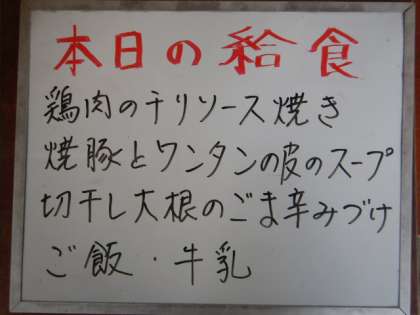 本日の給食
鶏肉のチリソース焼き
焼豚とワンタンの皮のスープ
切干し大根のごま辛みづけ
ご飯・牛乳